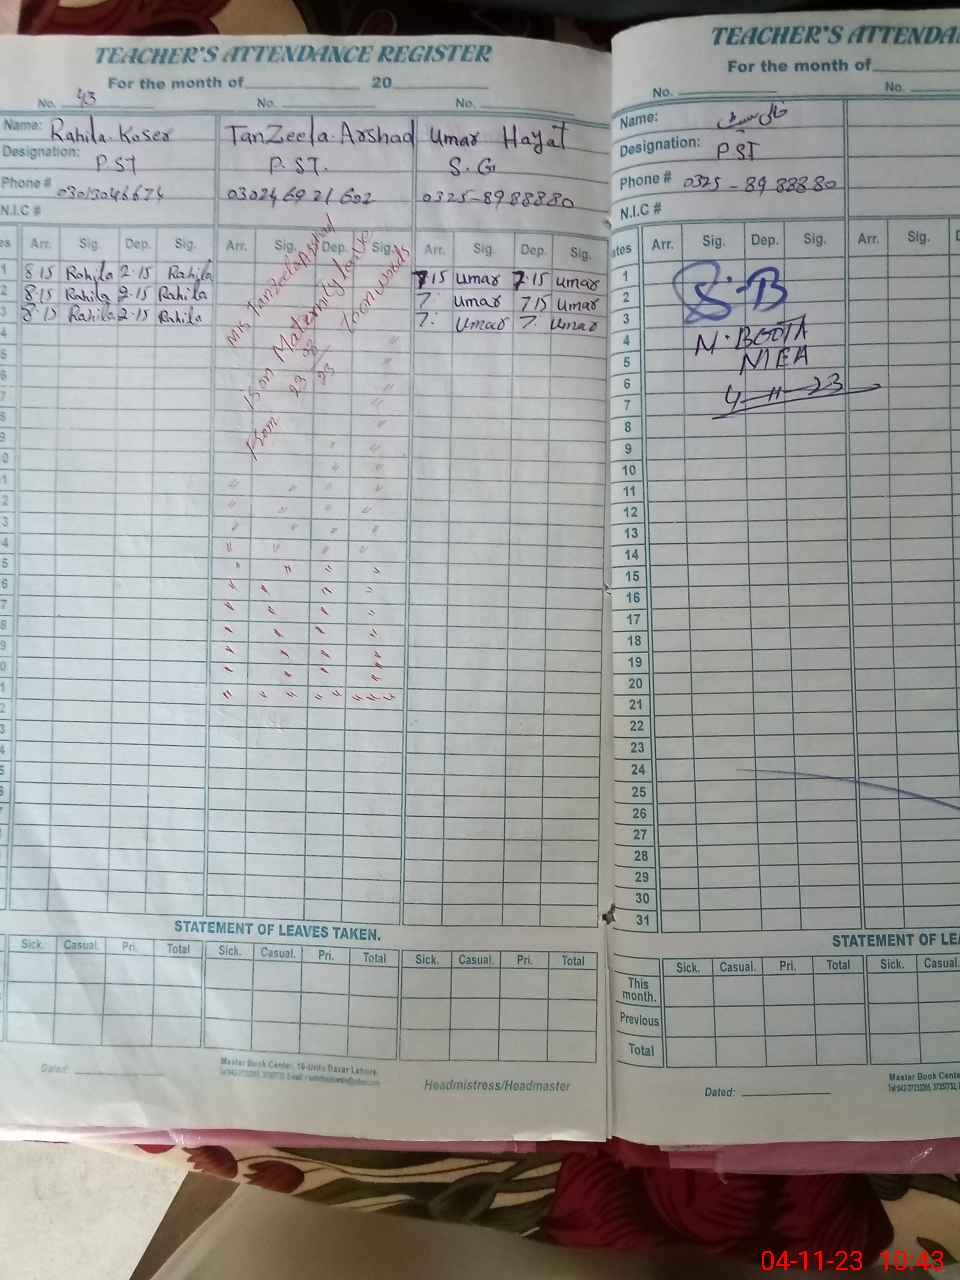 TEACHER'S ATTENDANCE REGISTER
For the month of 20
No. 43 No. No.
Name: Rahila Koser TanZeela Arshad Umar Hayat
Designation: PST P.ST. S.G
Phone # 030246921602 0325-8988880
N.I.C #
Arr. Sig. Dep. Sig. Arr. Sig. Dep. Sig. Arr. Sig. Dep. Sig.
1 8·15 Rahila 2·15 Rahila 7 15 umar 7·15 umar
2 8·15 Rahila 2·15 Rahila 7: umar 7 15 umar
3 8·15 Rahila 2·15 Rahila 7: umar 7: umar
Mrs TanZeela Arshad
is on Maternity
From 23
STATEMENT OF LEAVES TAKEN.
Sick. Casual. Pri. Total Sick. Casual. Pri. Total Sick. Casual. Pri. Total
Dated:
Master Book Center, 19-Urdu Bazar Lahore.
Headmistress/Headmaster
TEACHER'S ATTENDA
For the month of
No. No.
Name:
Designation: PST
Phone # 0325-8988880
N.I.C #
ates Arr. Sig. Dep. Sig. Arr. Sig.
1
2 S.B
3
4 M·BOOTA
5 NIEA
6
7 4-11-23
8
9
10
11
12
13
14
15
16
17
18
19
20
21
22
23
24
25
26
27
28
29
30
31
STATEMENT OF LE
Sick. Casual. Pri. Total Sick. Casual.
This month.
Previous
Total
Dated:
Master Book Cente
04-11-23 10:43